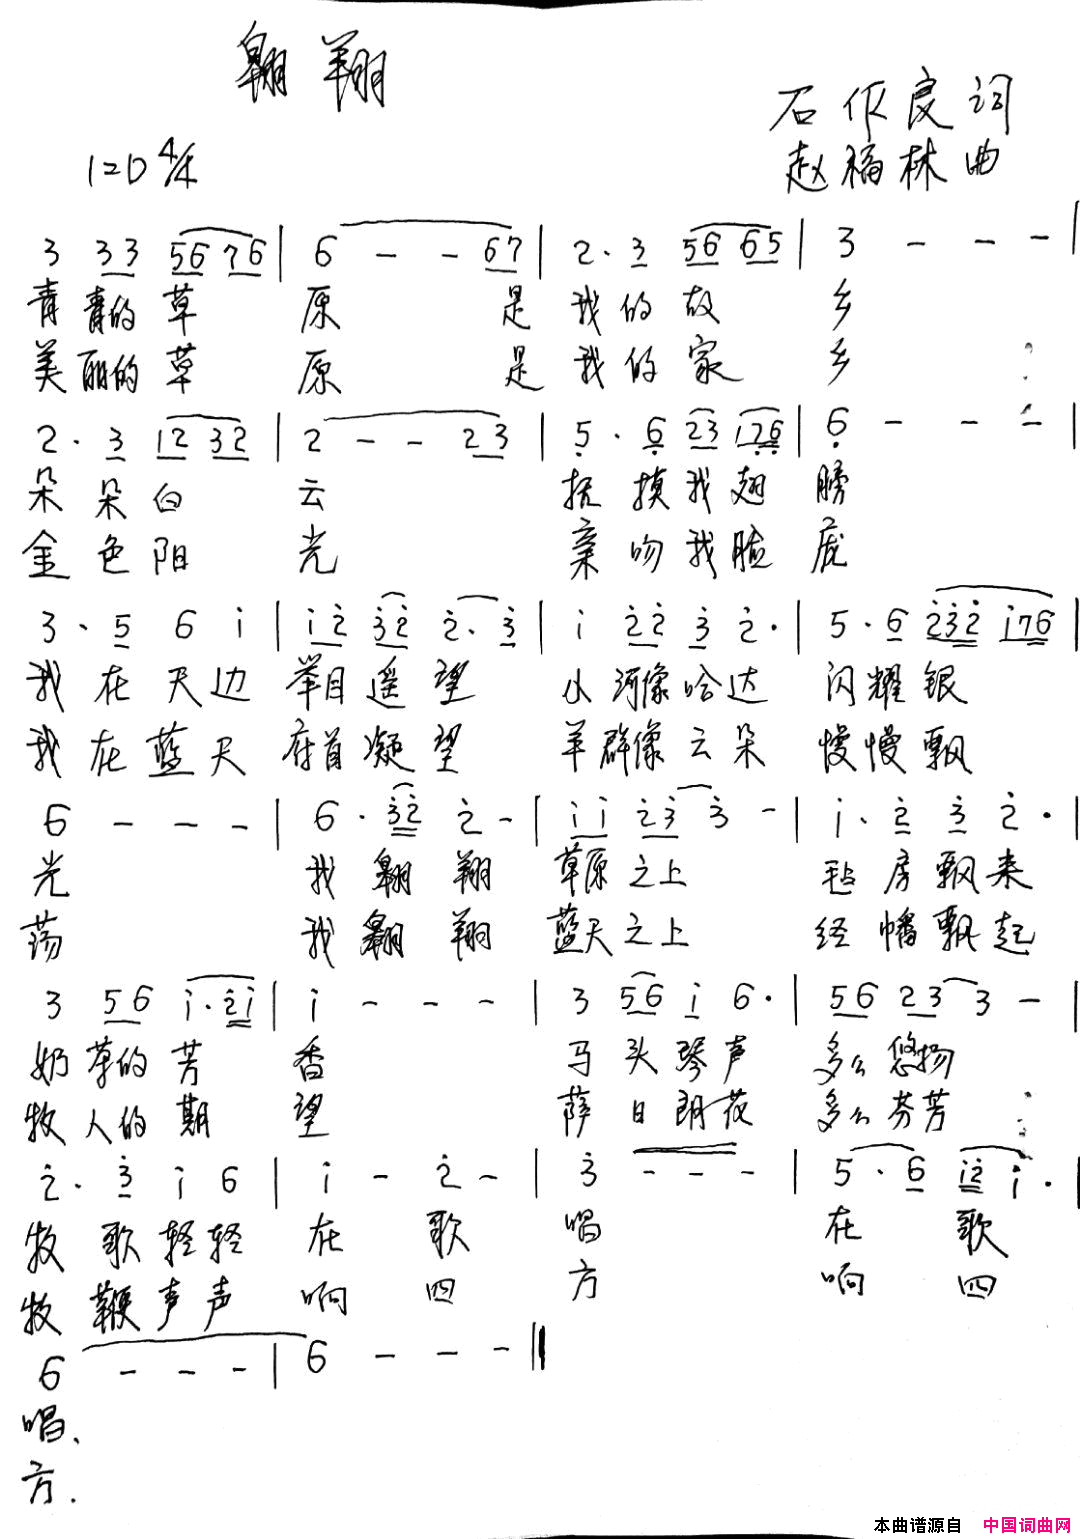 翱翔
石作良词
1=D 4/4
赵福林曲
3 33 56 76 | 6 - - 67 | 2· 3 56 65 | 3 - - - |
青青的草原 是我的故乡
美丽的草原 是我的家乡
2· 3 12 32 | 2 - - 23 | 5· 6 23 176 | 6 - - - |
朵朵白云 抚摸我翅膀
金色阳光 亲吻我脸庞
3· 5 6 i | i2 32 2· 3 | i 22 3 2· | 5· 6 232 i76 |
我在天边 举目遥望 小河像哈达 闪耀银
我在蓝天 府首凝望 羊群像云朵 慢慢飘
6 - - - | 6· 32 2 - | ii 23 3 - | i· 2 3 2· |
光 我翱翔 草原之上 毡房飘来
荡 我翱翔 蓝天之上 经幡飘起
3 56 i·2i | i - - - | 3 56 i 6· | 56 23 3 - |
奶茶的芳香 马头琴声 多么悠扬
牧人的期望 萨日朗花 多么芬芳
2· 3 i 6 | i - 2 - | 3 - - - | 5· 6 i2 i· |
牧歌轻轻 在歌唱 在歌
牧鞭声声 响四方 响四
6 - - - | 6 - - - ‖
唱、
方.
本曲谱源自 中国词曲网